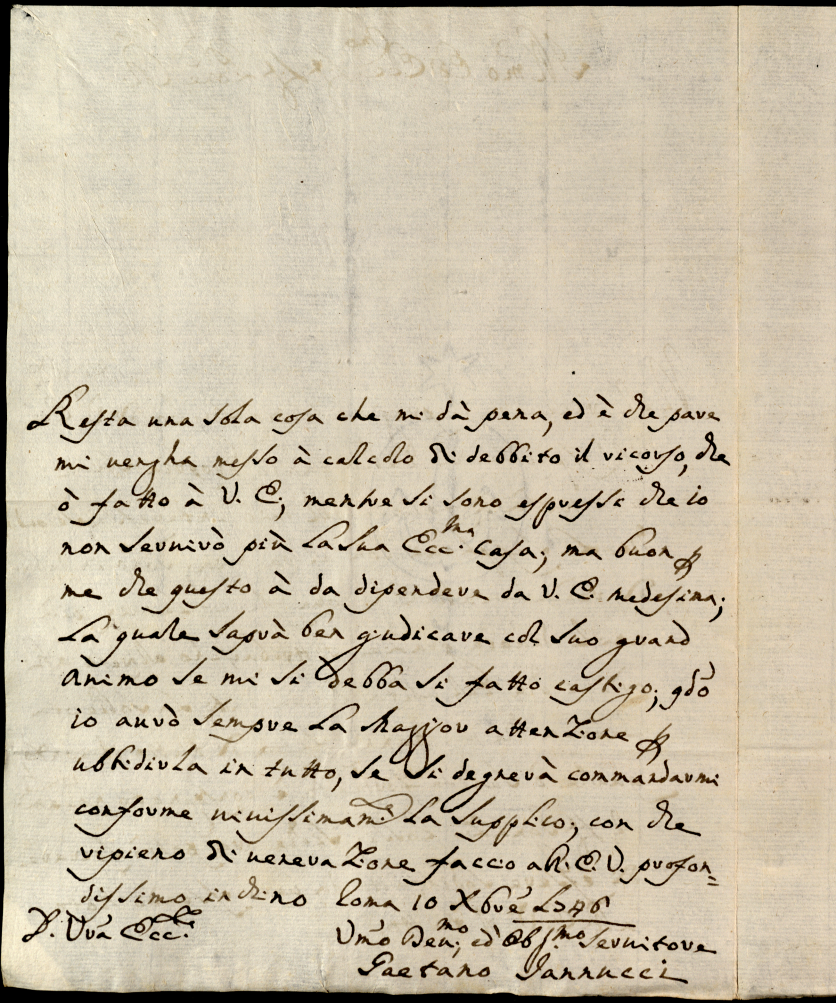 Resta una sola cosa che mi dà pena, ed è che pare
mi vengha messo à calcolo di debbito il ricorso, che
ò fatto à V. E., mentre si sono espressi che io
non servirò più la sua Ecc.ma Casa; ma buon p
me che questo à da dipendere da V. E. medesima;
La quale saprà ben giudicare col suo grand
animo se mi si debba si fatto castigo; qdo
io avrò sempre la Maggior attenzione p
ubbidirla in tutto, se si degnerà commandarmi
conforme vivissimam.e La supplico; con che
ripieno di venerazione faccio all'E. V. profon=
dissimo inchino Roma 10 Xbre 1746
D. V.ra Ecc.za
Um̃o Dev.mo; ed Obs.mo Servitore
Gaetano Iannucci